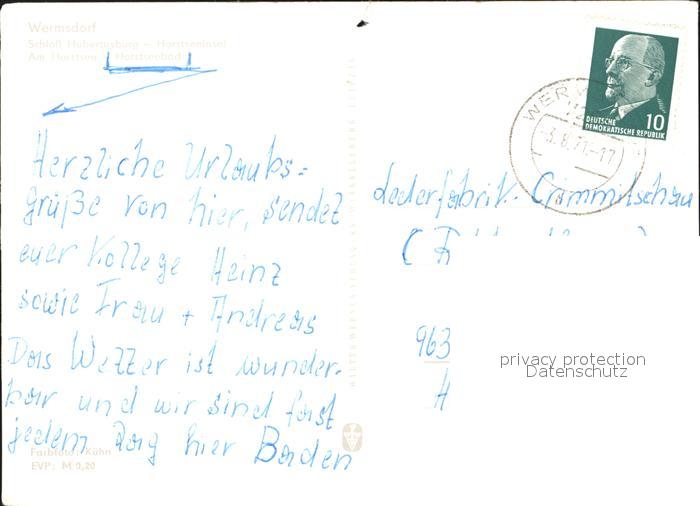 Wermsdorf
Schloß Hubertusburg – Horstseeinsel
Am Horstsee Horstseebad
DEUTSCHE
DEMOKRATISCHE REPUBLIK
10
-3.8.71-17
Herzliche Urlaubs=
grüße von hier, sendet
euer Kollege Heinz
sowie Frau + Andreas
Das Wetter ist wunder-
bar und wir sind fast
jedem Tag hier Baden
Lederfabrik. Crimmitschau
(
963
privacy protection
Datenschutz
Farbfoto: Kühn
EVP: M 0,20